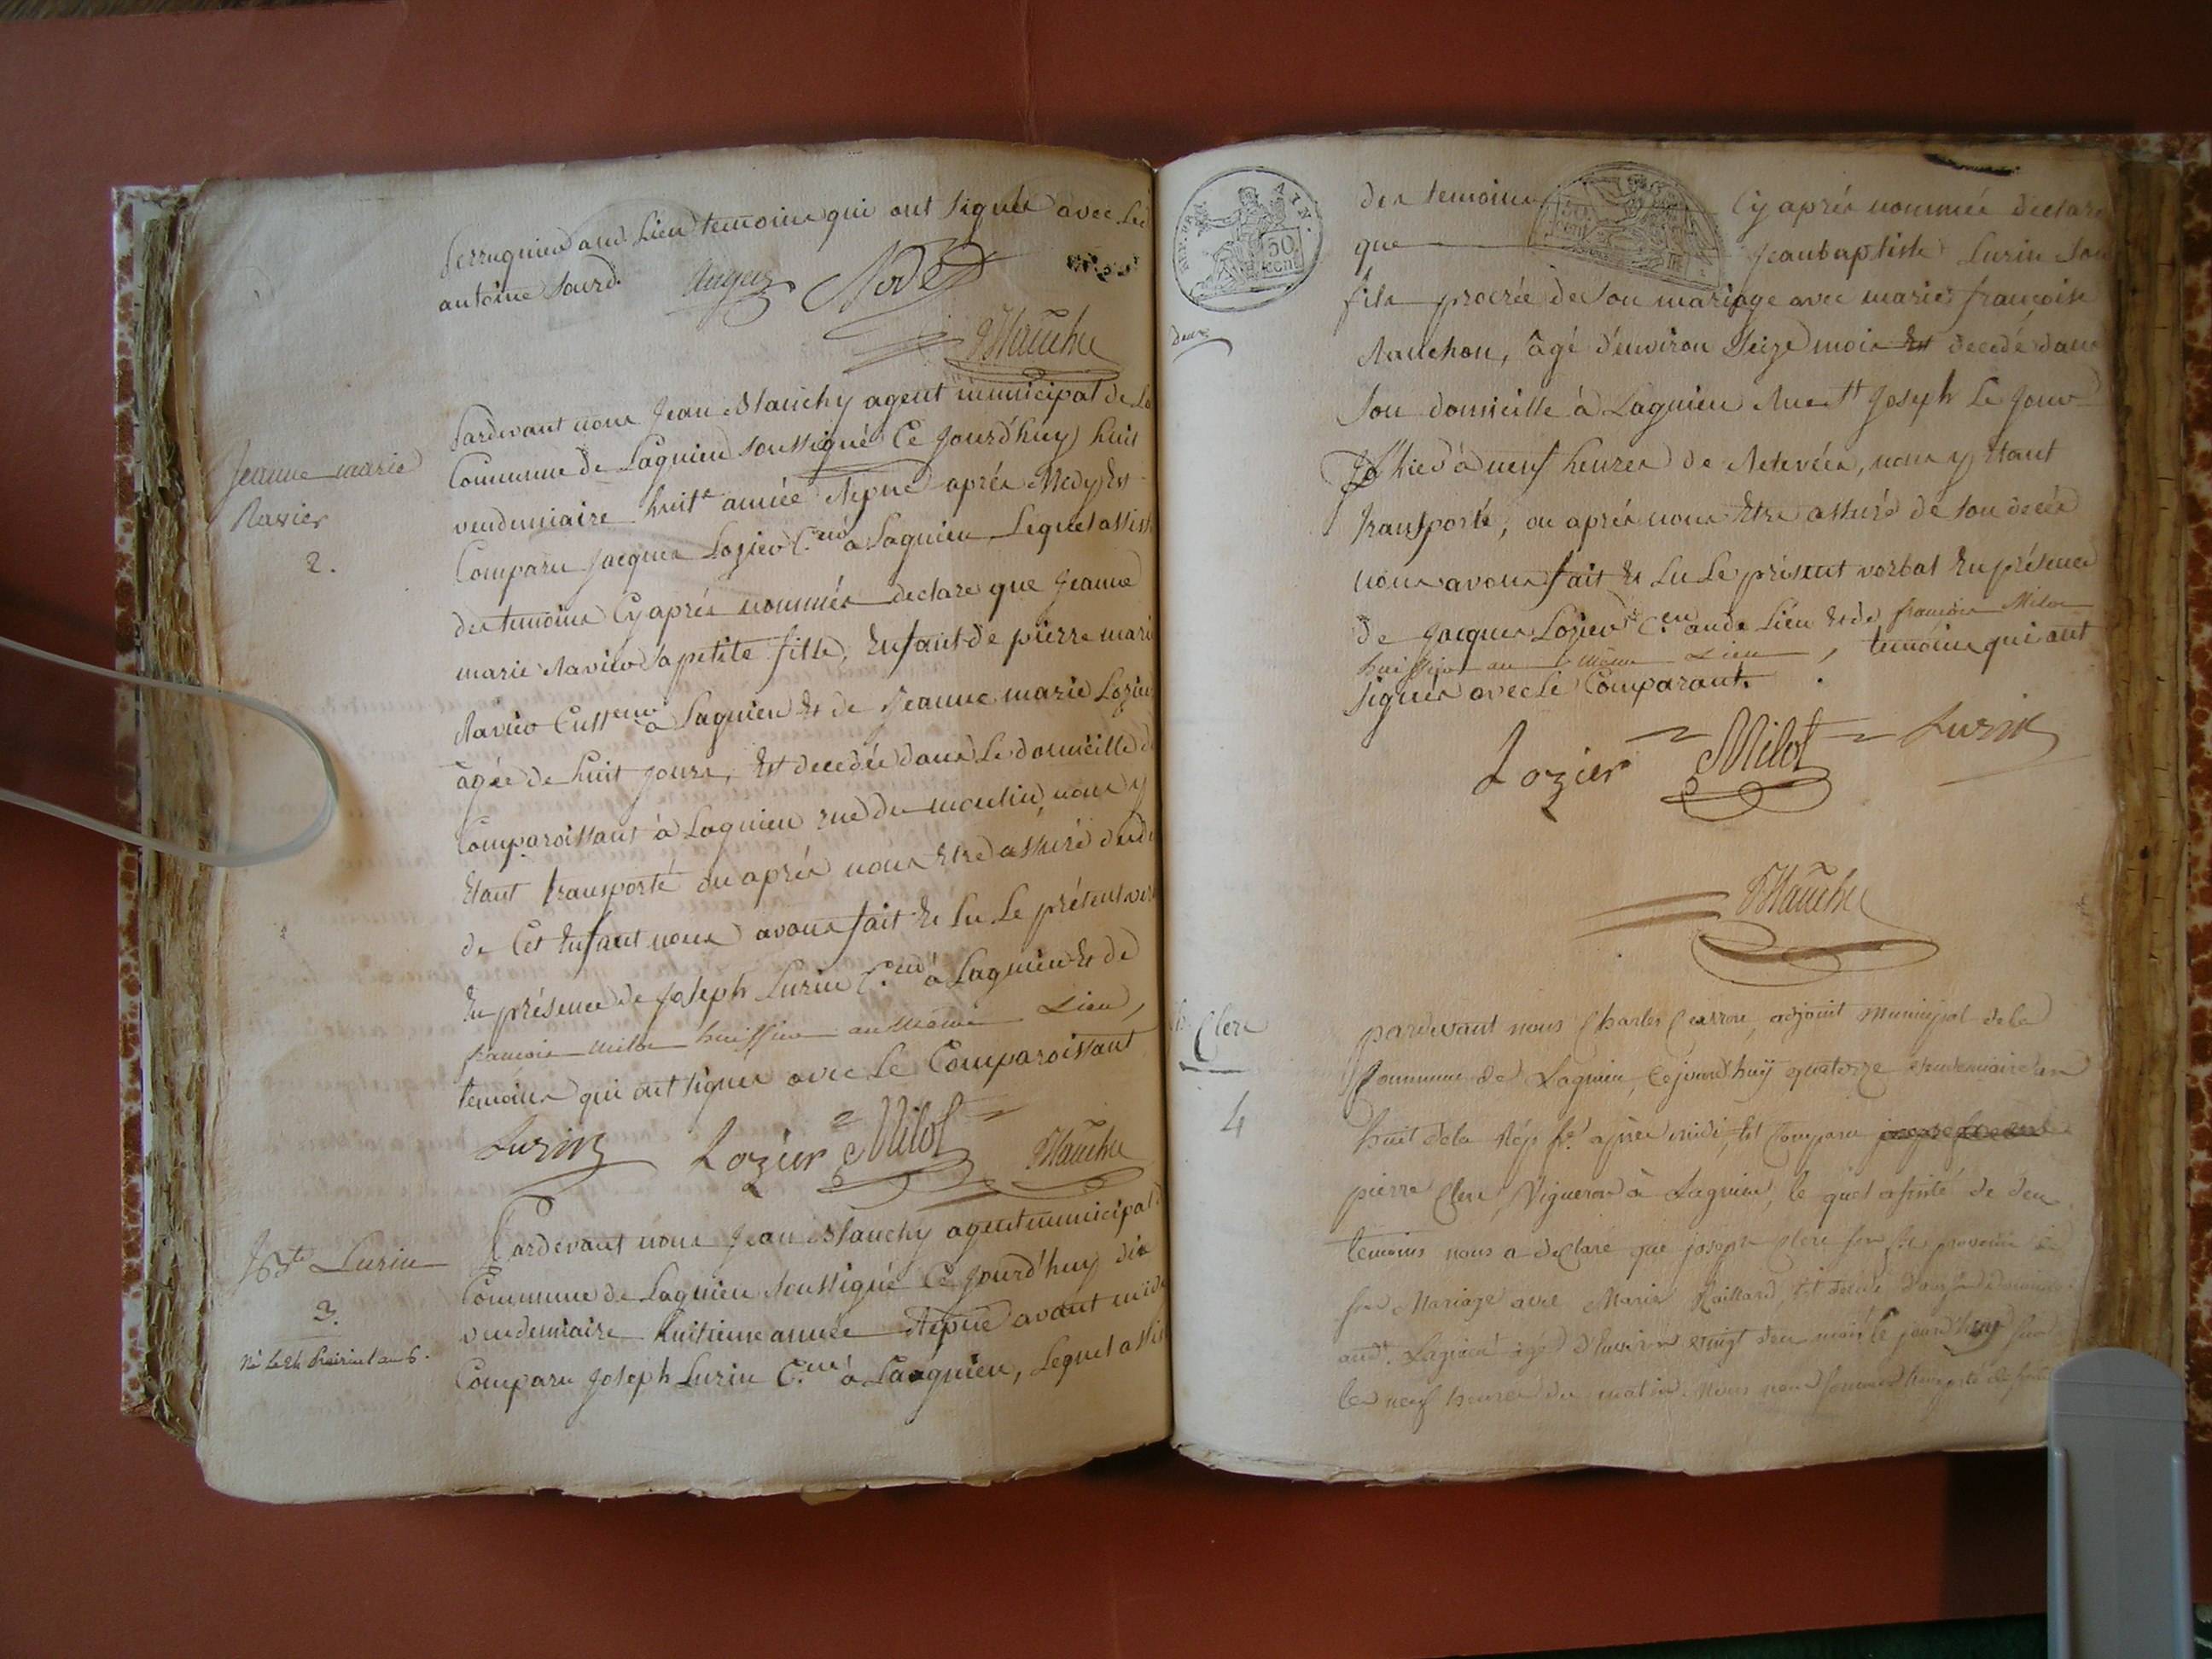 perruquier aud. Lieu temoins qui ont signés avec Led
antoine Sourd.
Blanchy
Jeanne marie
Ravier
2.
Pardevant nous Jean Blanchy agent municipal de La
Commune de Lagnieu soussigné Ce Jourd'huy huit
vendemiaire huit.e année Repne après Medy Est
Comparu Jacques Lozier C.en à Lagnieu Lequel assisté
des temoins Cy après nommés declare que Jeanne
marie Ravier sa petite fille, Enfant de pierre marie
Ravier Cult.eur à Lagnieu Et de Jeanne marie Lozier
âgée de huit Jours, Est decedée dans Le domicille du
Comparoissant à Lagnieu rue du moulin, nous y
Etant transporté ou après nous Etre assuré du
de Cet Enfant nous avons fait Et Lu Le présent
En présence de Joseph Lurin C.en à Lagnieu Et de
françois milot huissier au même Lieu,
temoins qui ont signés avec Le Comparoissant
Lurin Lozier Milot Blanchy
J Bte Lurin
3.
né le 24 Prairial an 6.
Pardevant nous Jean Blanchy agent municipal
Commune de Lagnieu soussigné Ce Jourd'huy dix
vendemiaire huitieme année Repne avant midy
Comparu Joseph Lurin C.en à Lagnieu, Lequel assisté
REP. FRA. 50 cent
deux
des temoins Cy après nommés declare
que Jean baptiste Lurin son
fils procréé de son mariage avec marie françoise
Nanchon, âgé d'environ Seize mois Est decedé dans
Son domicille à Lagnieu Rue St Joseph Le Jour
d'hier à neuf heures de Relevées, nous y Etant
transporté, ou après nous Etre assuré de son decès
nous avons fait Et Lu Le présent verbal En présence
de Jacques Lozier C.en aude Lieu Et de françois Milot
huissier au même Lieu, temoins qui ont
signés avec Le Comparant.
Lozier Milot Lurin
Blanchy
Clere
4
pardevant nous Charles adjoint Municipal de la
Commune de Lagnieu, Cejourd'huy quatorze vendemiaire an
huit de la Rép fr.e après midi, Est Comparu
pierre Clere Vigneron à Lagnieu, le quel assisté de deux
temoins nous a declaré que joseph Clere son fils provenu de
son Mariage avec Marie Raillard, Est decedé dans son domicile
aud. Lagnieu âgé d'Environ vingt deux mois le jourd'huy sur
les neuf heures du matin. Nous nous sommes transporté de suite